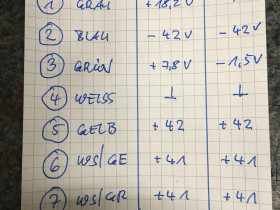 1 GRAU +18,2V
2 BLAU -42V -42V
3 GRÜN +7,8V -1,5V
4 WEISS ⊥ ⊥
5 GELB +42 +42
6 WS/GE +41 +41
7 WS/GR +41 +41